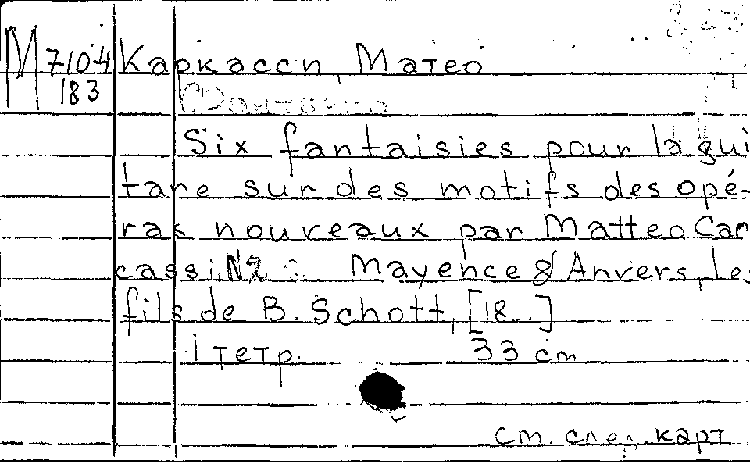 М 7104 Каркасси, Матео
183
Six fantaisies pour la gui
tare sur des motifs des opé-
ras nouveaux par Matteo Car
cassi. N2 Mayence & Anvers, Les
fils de B. Schott, [18..]
1 тетр. 33 cm
см. след. карт